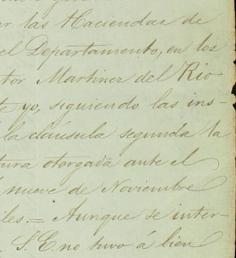 er las Haciendas de
el Departamento, en los
tor Martinez del Rio
te yo, siguiendo las ins-
la clausula segunda la
tura otorgada ante el
nueve de Noviembre
les.= Aunque se inter-
S. E. no tuvo á bien